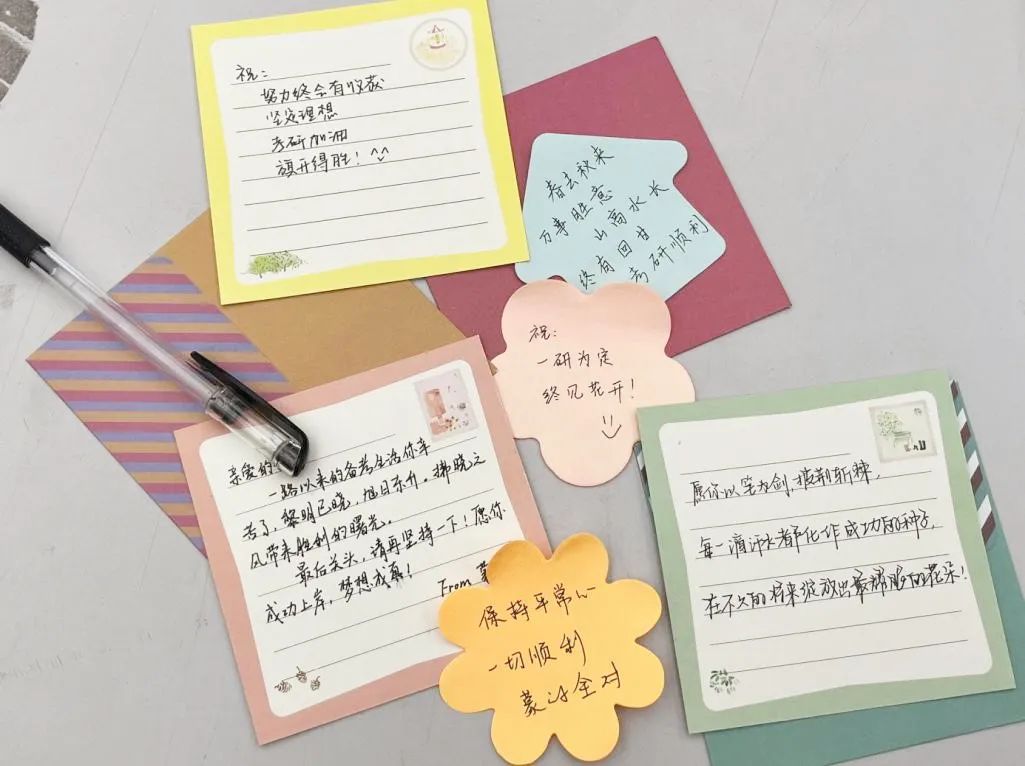 祝：
努力终会有收获
坚定理想
考研加油
旗开得胜！^^
春去秋来
万事胜意
山高水长
终有回甘
考研顺利
祝：
一研为定
终见花开！
亲爱的
一路以来的备考生活你辛
苦了，黎明已晓，旭日东升。拂晓之
风带来胜利的曙光。
最后关头，请再坚持一下！愿你
成功上岸，梦想成真！
From
保持平常心
一切顺利
蒙的全对
愿你以笔为剑，披荆斩棘，
每一滴汗水都化作成功的种子，
在不久的将来绽放出最耀眼的花朵！